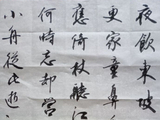 夜飲東
更家童鼻
應倚杖聽江
何時忘却營
小舟從此逝